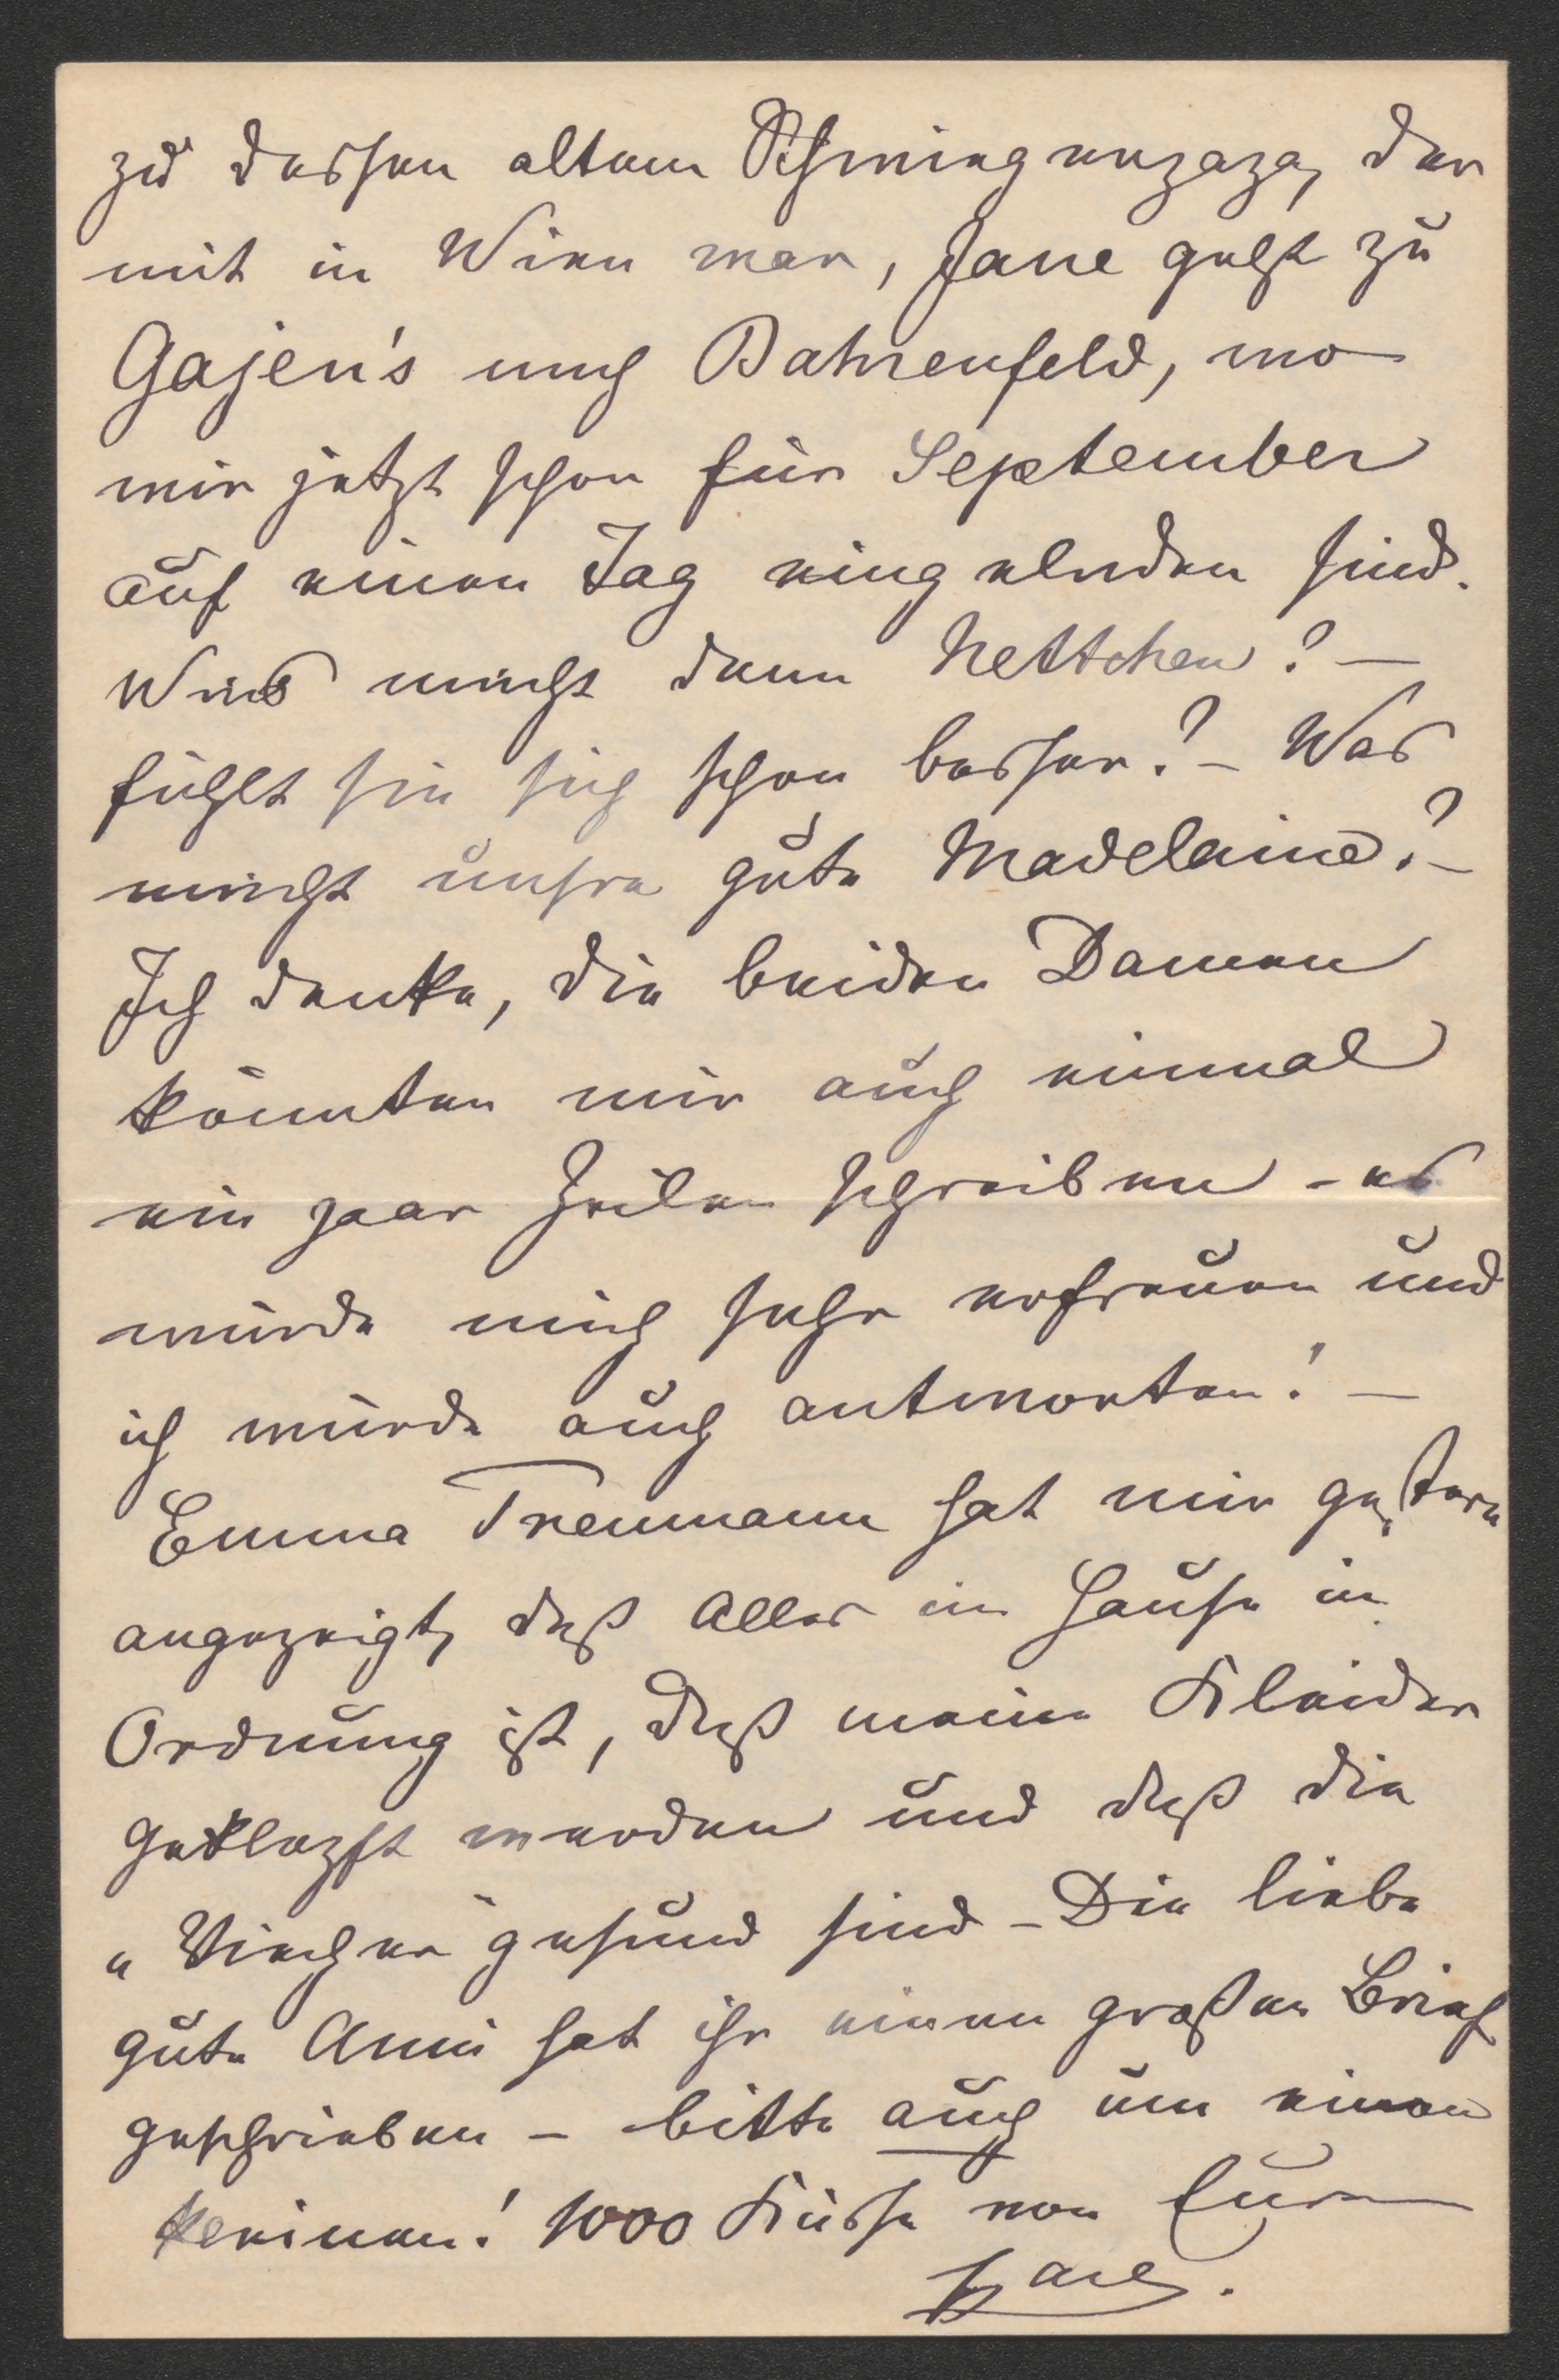 zu dessen altem Schwiegerpapa, der
mit in Wien war, Jane geht zu
Gajen's nach Bahrenfeld, wo
wir jetzt schon für September
auf einen Tag eingeladen sind.
Was macht denn Nettchen? –
fühlt sie sich schon besser? – Was
macht unsre gute Madelaine? –
Ich denke, die beiden Damen
könnten mir auch einmal
ein paar Zeilen schreiben – es
würde mich sehr erfreuen und
ich würde auch antworten! –
Emma Treumann hat mir gestern
angezeigt, daß Alles im Hause in
Ordnung ist, daß meine Kleider
geklopft werden und daß die
„Viecher" gesund sind – Die liebe
gute Anni hat ihr einen großen Brief
geschrieben – bitte auch um einen
kleinen! 1000 Küsse von Eurem